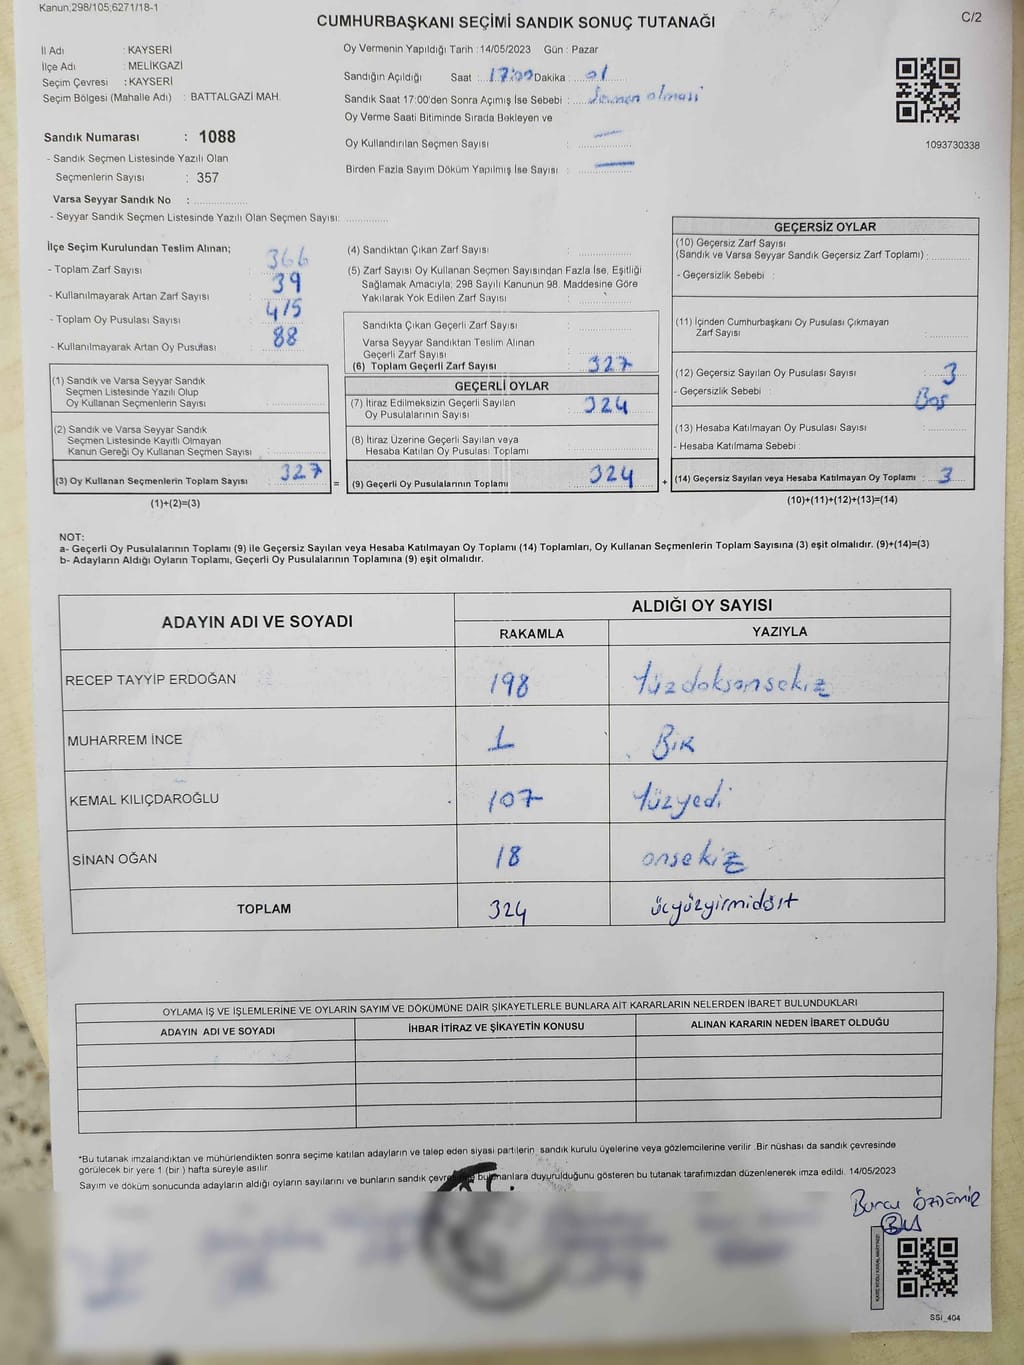 Kanun;298/105;6271/18-1
C/2
CUMHURBAŞKANI SEÇİMİ SANDIK SONUÇ TUTANAĞI
İl Adı : KAYSERİ
İlçe Adı : MELİKGAZİ
Seçim Çevresi : KAYSERİ
Seçim Bölgesi (Mahalle Adı) : BATTALGAZİ MAH.
Oy Vermenin Yapıldığı Tarih : 14/05/2023 Gün : Pazar
Sandığın Açıldığı Saat : 17:00 Dakika : 01
Sandık Saat 17:00'den Sonra Açımış İse Sebebi : olması
Oy Verme Saati Bitiminde Sırada Bekleyen ve
Oy Kullandırılan Seçmen Sayısı : —
Birden Fazla Sayım Döküm Yapılmış İse Sayısı : —
1093730338
Sandık Numarası : 1088
- Sandık Seçmen Listesinde Yazılı Olan
Seçmenlerin Sayısı : 357
Varsa Seyyar Sandık No :
- Seyyar Sandık Seçmen Listesinde Yazılı Olan Seçmen Sayısı:
İlçe Seçim Kurulundan Teslim Alınan;
- Toplam Zarf Sayısı : 366
- Kullanılmayarak Artan Zarf Sayısı : 39
- Toplam Oy Pusulası Sayısı : 415
- Kullanılmayarak Artan Oy Pusulası : 88
(1) Sandık ve Varsa Seyyar Sandık
Seçmen Listesinde Yazılı Olup
Oy Kullanan Seçmenlerin Sayısı :
(2) Sandık ve Varsa Seyyar Sandık
Seçmen Listesinde Kayıtlı Olmayan
Kanun Gereği Oy Kullanan Seçmen Sayısı :
(3) Oy Kullanan Seçmenlerin Toplam Sayısı : 327 =
(1)+(2)=(3)
(4) Sandıktan Çıkan Zarf Sayısı :
(5) Zarf Sayısı Oy Kullanan Seçmen Sayısından Fazla İse, Eşitliği
Sağlamak Amacıyla; 298 Sayılı Kanunun 98. Maddesine Göre
Yakılarak Yok Edilen Zarf Sayısı :
Sandıkta Çıkan Geçerli Zarf Sayısı :
Varsa Seyyar Sandıktan Teslim Alınan
Geçerli Zarf Sayısı :
(6) Toplam Geçerli Zarf Sayısı : 327
GEÇERLİ OYLAR
(7) İtiraz Edilmeksizin Geçerli Sayılan
Oy Pusulalarının Sayısı : 324
(8) İtiraz Üzerine Geçerli Sayılan veya
Hesaba Katılan Oy Pusulası Toplamı :
(9) Geçerli Oy Pusulalarının Toplamı : 324 +
GEÇERSİZ OYLAR
(10) Geçersiz Zarf Sayısı
(Sandık ve Varsa Seyyar Sandık Geçersiz Zarf Toplamı) :
- Geçersizlik Sebebi :
(11) İçinden Cumhurbaşkanı Oy Pusulası Çıkmayan
Zarf Sayısı :
(12) Geçersiz Sayılan Oy Pusulası Sayısı : 3
- Geçersizlik Sebebi : Boş
(13) Hesaba Katılmayan Oy Pusulası Sayısı :
- Hesaba Katılmama Sebebi :
(14) Geçersiz Sayılan veya Hesaba Katılmayan Oy Toplamı : 3
(10)+(11)+(12)+(13)=(14)
NOT:
a- Geçerli Oy Pusulalarının Toplamı (9) ile Geçersiz Sayılan veya Hesaba Katılmayan Oy Toplamı (14) Toplamları, Oy Kullanan Seçmenlerin Toplam Sayısına (3) eşit olmalıdır. (9)+(14)=(3)
b- Adayların Aldığı Oyların Toplamı, Geçerli Oy Pusulalarının Toplamına (9) eşit olmalıdır.
ADAYIN ADI VE SOYADI
ALDIĞI OY SAYISI
RAKAMLA YAZIYLA
RECEP TAYYİP ERDOĞAN 198 Yüzdoksansekiz
MUHARREM İNCE 1 BİR
KEMAL KILIÇDAROĞLU 107 Yüzyedi
SİNAN OĞAN 18 onsekiz
TOPLAM 324 üçyüzyirmidört
OYLAMA İŞ VE İŞLEMLERİNE VE OYLARIN SAYIM VE DÖKÜMÜNE DAİR ŞİKAYETLERLE BUNLARA AİT KARARLARIN NELERDEN İBARET BULUNDUKLARI
ADAYIN ADI VE SOYADI İHBAR İTİRAZ VE ŞİKAYETİN KONUSU ALINAN KARARIN NEDEN İBARET OLDUĞU
*Bu tutanak imzalandıktan ve mühürlendikten sonra seçime katılan adayların ve talep eden siyasi partilerin, sandık kurulu üyelerine veya gözlemcilerine verilir. Bir nüshası da sandık çevresinde
görülecek bir yere 1 (bir ) hafta süreyle asılır.
Sayım ve döküm sonucunda adayların aldığı oyların sayılarını ve bunların sandık bulunanlara duyurulduğunu gösteren bu tutanak tarafımızdan düzenlenerek imza edildi. 14/05/2023
Burcu ÖZDEMİR
SSİ_404